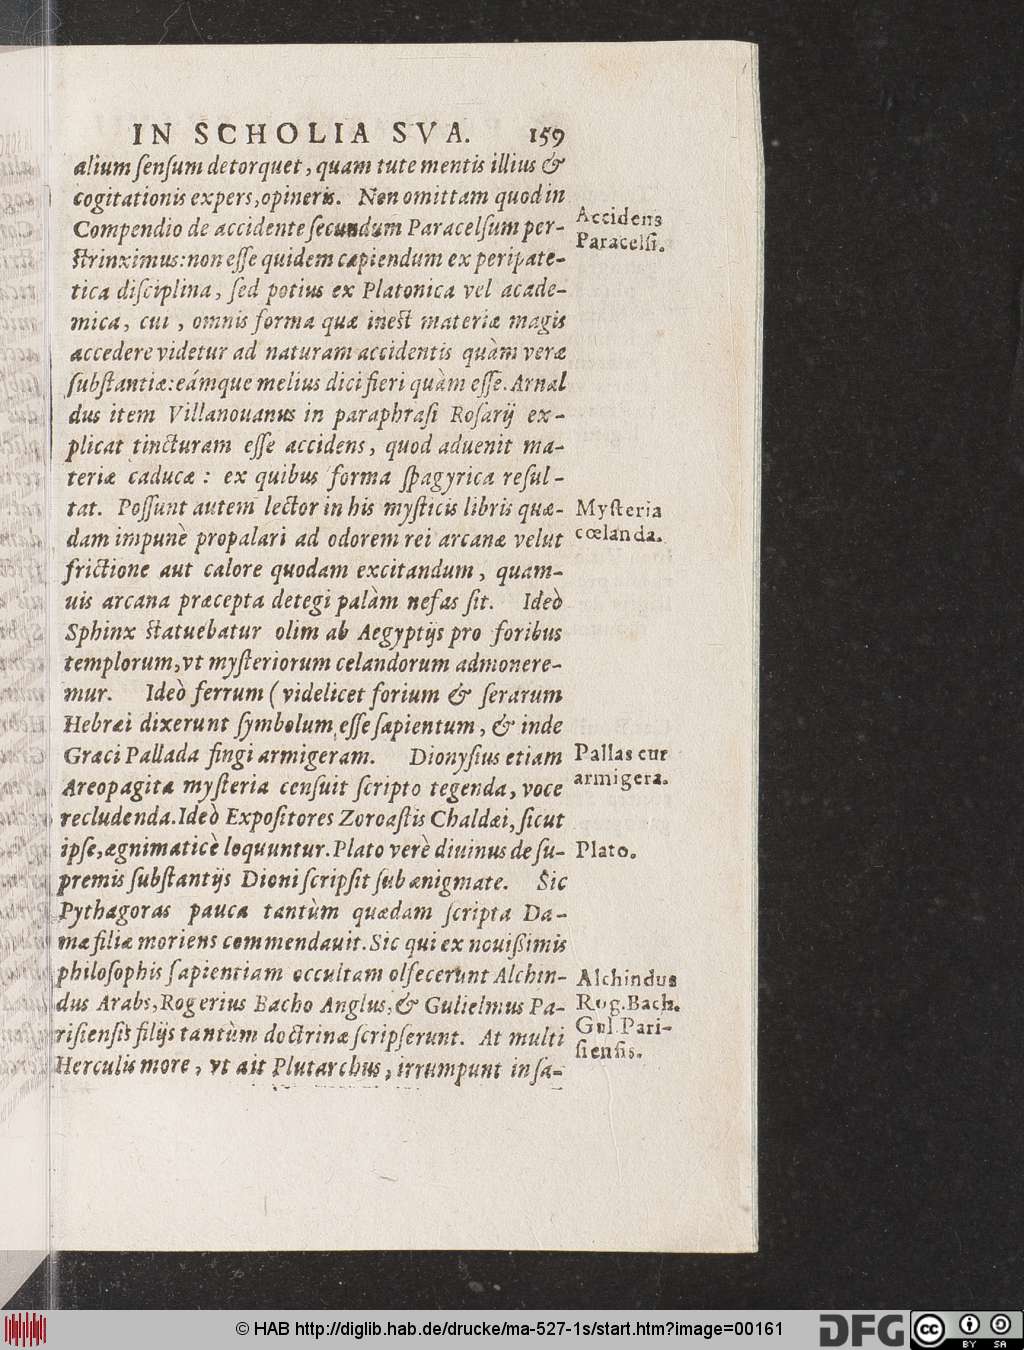 IN SCHOLIA SVA. 159
alium ſenſum detorquet, quam tute mentis illius &
cogitationis expers, opineris. Non omittam quod in
Compendio de accidente ſecundum Paracelſum per-
ſtrinximus: non eſſe quidem capiendum ex peripate-
tica diſciplina, ſed potius ex Platonica vel acade-
mica, cui, omnis forma quæ ineſt materiæ magis
accedere videtur ad naturam accidentis quàm veræ
ſubſtantiæ: eámque melius dici fieri quàm eſſe. Arnal
dus item Villanouanus in paraphraſi Roſarij ex-
plicat tincturam eſſe accidens, quod aduenit ma-
teriæ caducæ: ex quibus forma ſpagyrica reſul-
tat. Poſſunt autem lector in his myſticis libris quæ-
dam impunè propalari ad odorem rei arcanæ velut
frictione aut calore quodam excitandum, quam-
uis arcana præcepta detegi palàm nefas ſit. Ideò
Sphinx ſtatuebatur olim ab Aegyptijs pro foribus
templorum, vt myſteriorum celandorum admonere-
mur. Ideò ferrum (videlicet forium & ſerarum
Hebræi dixerunt ſymbolum eſſe ſapientum, & inde
Græci Pallada fingi armigeram. Dionyſius etiam
Areopagita myſteria cenſuit ſcripto tegenda, voce
recludenda. Ideò Expoſitores Zoroaſtis Chaldæi, ſicut
ipſe, ægnimaticè loquuntur. Plato verè diuinus de ſu-
premis ſubſtantijs Dioni ſcripſit ſub ænigmate. Sic
Pythagoras pauca tantùm quædam ſcripta Da-
mæ filiæ moriens commendauit. Sic qui ex nouißimis
philoſophis ſapientiam occultam olfecerunt Alchin-
dus Arabs, Rogerius Bacho Anglus, & Gulielmus Pa-
riſienſis filijs tantùm doctrinæ ſcripſerunt. At multi
Herculis more, vt ait Plutarchus, irrumpunt in ſa-
Accidens
Paracelſi.
Myſteria
cœlanda.
Pallas cur
armigera.
Plato.
Alchindus
Rog. Bach.
Gul. Pari-
ſienſis.
© HAB http://diglib.hab.de/drucke/ma-527-1s/start.htm?image=00161
DFG
cc
BY SA